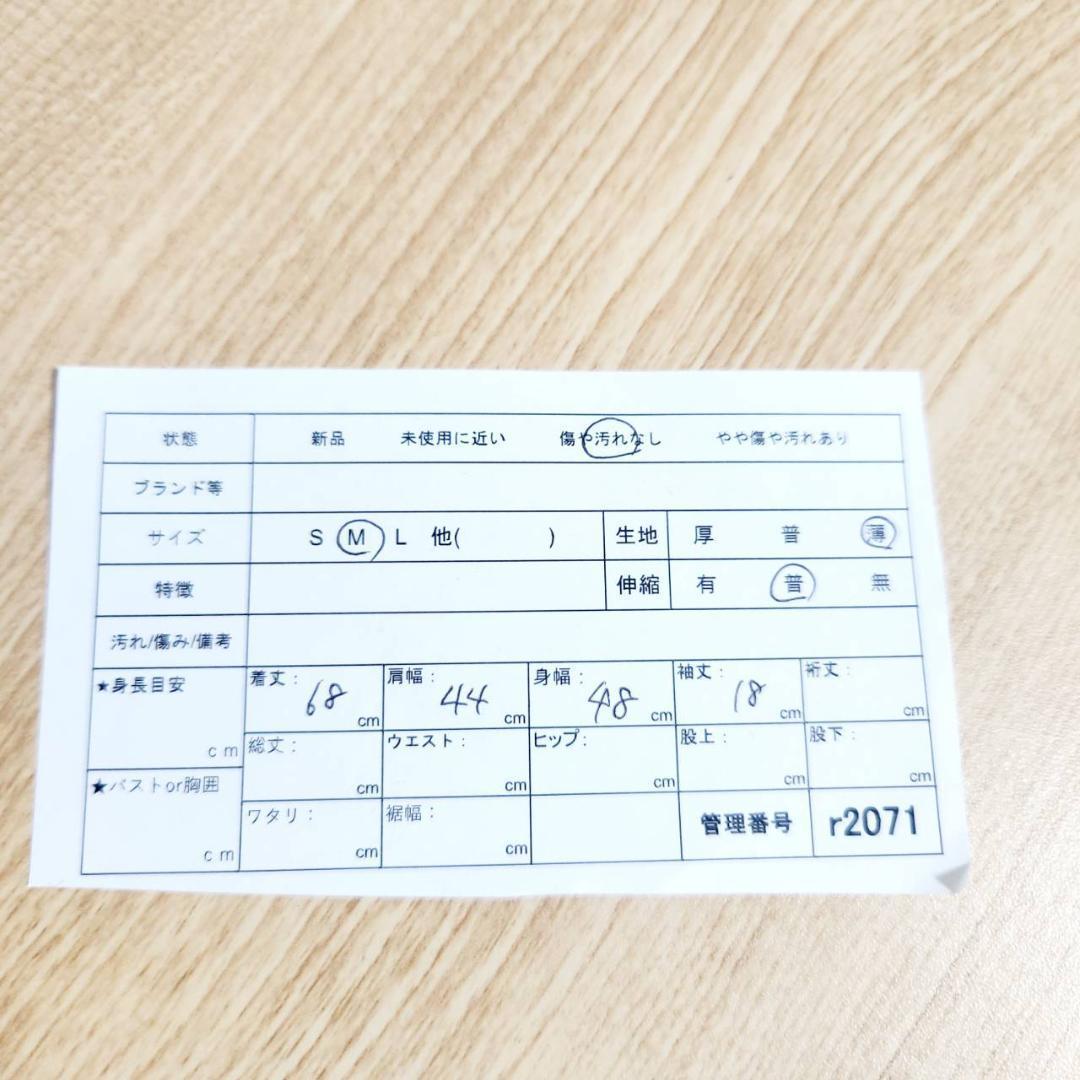 状態 新品 未使用に近い 傷や汚れなし やや傷や汚れあり
ブランド等
サイズ S M L 他( ) 生地 厚 普 薄
特徴 伸縮 有 普 無
汚れ/傷み/備考
★身長目安 cm
着丈: 68 cm 肩幅: 44 cm 身幅: 48 cm 袖丈: 18 cm 裄丈: cm
総丈: cm ウエスト: cm ヒップ: cm 股上: cm 股下: cm
★バストor胸囲 cm
ワタリ: cm 裾幅: cm 管理番号 r2071